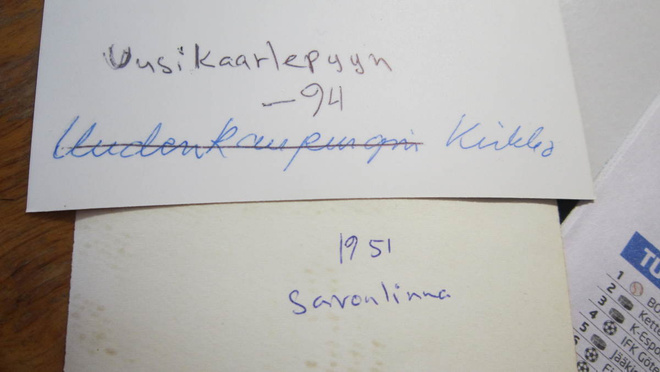 Uusikaarlepyyn
-94
Uudenkaupungin Kirkko
1951
Savonlinna
TU
1 BO
2 Kettt
3 K-Espo
4 IFK Göte
5 Jääki
6